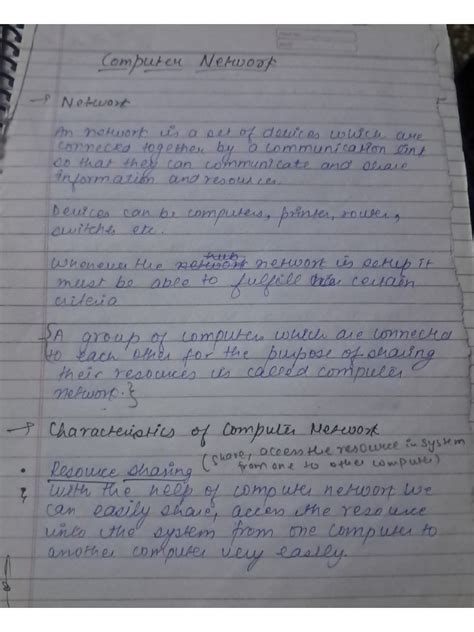 Computer Network
→ Network
An network is a set of devices which are
connected together by a communication link
so that they can communicate and share
information and resources.
Devices can be computers, printer, router,
switches etc.
Whenever the network is setup it
must be able to fulfill certain
criteria
{A group of computer which are connected
to each other for the purpose of sharing
their resources is called computer
network.}
→ Characteristics of Computer Network
• Resource sharing (share, access the resource in system
from one to other computer)
with the help of computer network we
can easily share, access the resource
into the system from one computer to
another computer very easily.